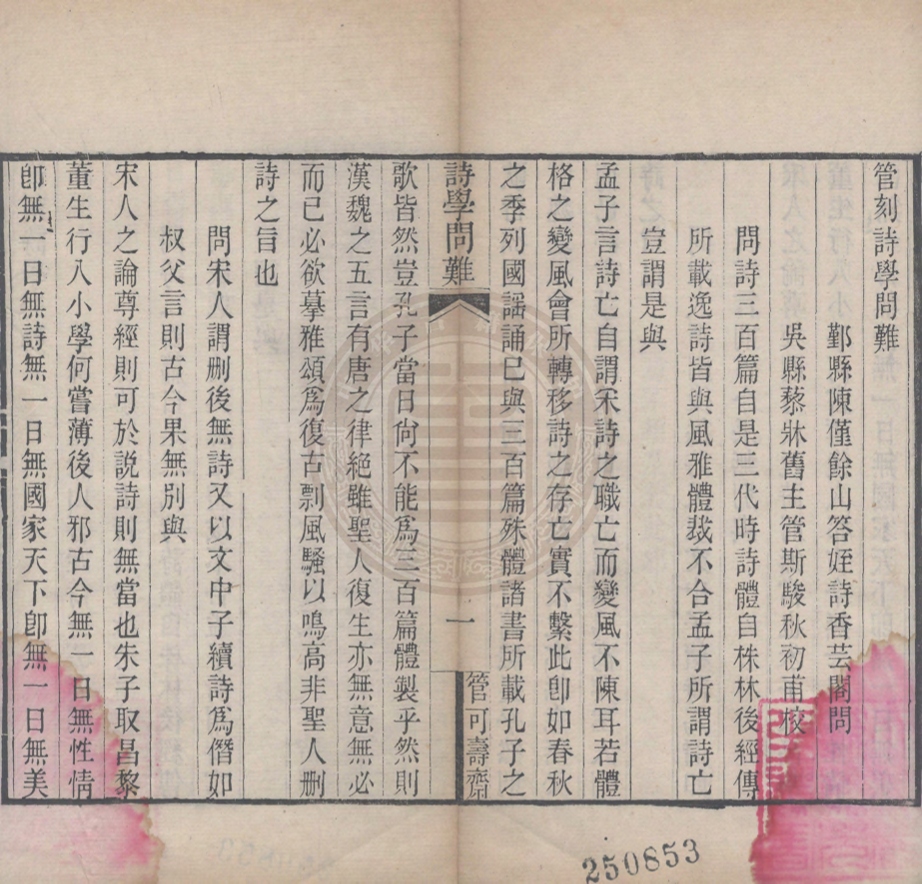 管刻詩學問難
鄞縣陳僅餘山答姪詩香芸閣問
吳縣藜牀舊主管斯駿秋初甫校
問詩三百篇自是三代時詩體自株林後經傳
所載逸詩皆與風雅體裁不合孟子所謂詩亡
豈謂是與
孟子言詩亡自謂采詩之職亡而變風不陳耳若體
格之變風會所轉移詩之存亡實不繫此卽如春秋
之季列國謠誦巳與三百篇殊體諸書所載孔子之
詩學問難
一
管可壽齋
歌皆然豈孔子當日尙不能爲三百篇體製乎然則
漢魏之五言有唐之律絕雖聖人復生亦無意無必
而已必欲摹雅頌爲復古剽風騷以鳴高非聖人刪
詩之旨也
問宋人謂刪後無詩又以文中子續詩爲僭如
叔父言則古今果無別與
宋人之論尊經則可於說詩則無當也朱子取昌黎
董生行入小學何嘗薄後人邪古今無一日無性情
卽無一日無詩無一日無國家天下卽無一日無美
250853